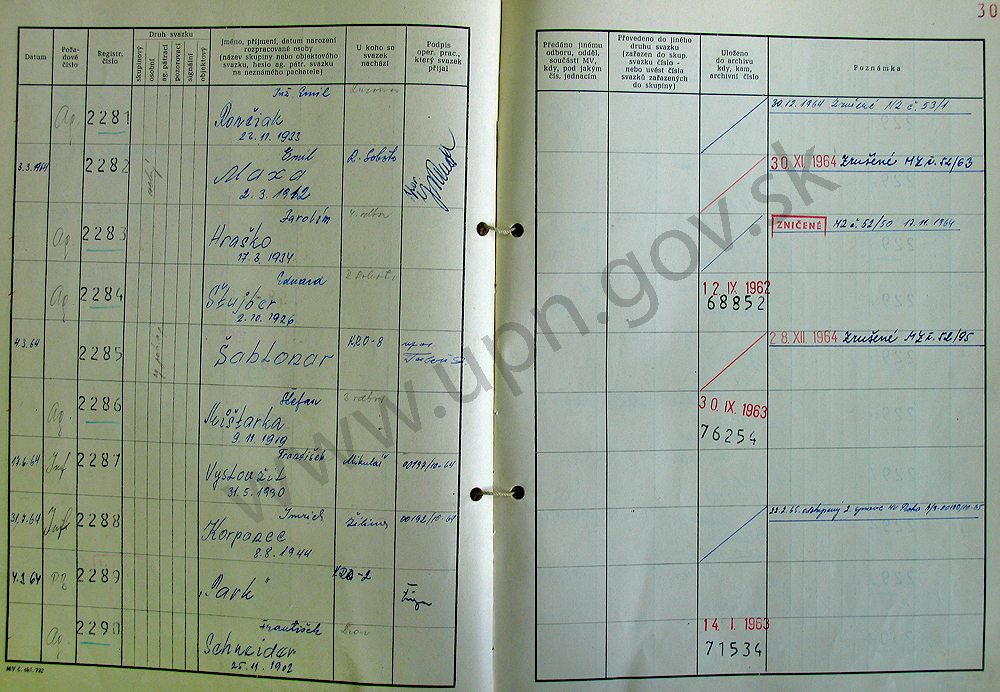 30
Datum
Pořadové číslo
Registr. číslo
Druh svazku
skupinový
osobní
ag. pátrací
pozorovací
signální
objektový
Jméno, příjmení, datum narození
rozpracované osoby
(název skupiny nebo objektového
svazku, heslo ag. pátr. svazku
na neznámého pachatele)
U koho se
svazek
nachází
Podpis
oper. prac.,
který svazek
přijal
Předáno jinému
odboru, odděl.
součásti MV,
kdy, pod jakým
čís. jednacím
Převedeno do jiného
druhu svazku
(zařazen do skup.
svazku číslo -
nebo uvést čísla
svazků zařazených
do skupiny)
Uloženo
do archivu
kdy, kam,
archivní číslo
Poznámka
Ag 2281 Inž. Emil
Rončiak
22.11.1933
30.12.1964 Zrušené MZ č. 53/1
3.3.1964 2282 Emil R. Sobota
Maxa
2.3.1912
30 XI. 1964 Zrušené MZ č. 52/63
Ag 2283 Jarolím 4. odbor
Hraško
17.3.1934
ZNIČENÉ MZ č. 52/50 17.11.1964
Ag 2284 Eduard
Štujber
2.10.1926
12 IX 1962
68852
4.3.64 2285 Šablonar KRO-8
28. XII. 1964 Zrušené MZ č. 52/95
Ag. 2286 Štefan 3 odbor
Mištarka
9.11.1919
30. IX. 1963
76254
17.6.64 Inf 2287 František Mikuláš 00197/10-64
Vystavil
31.5.1930
31.7.64 Inf 2288 Imrich Žilina 00192/10-64
Korponec
8.8.1944
4.2.64 2289 „Park" KRO-2
Ag 2290 František
Schneider
25.11.1902
14. I. 1963
71534
www.upn.gov.sk